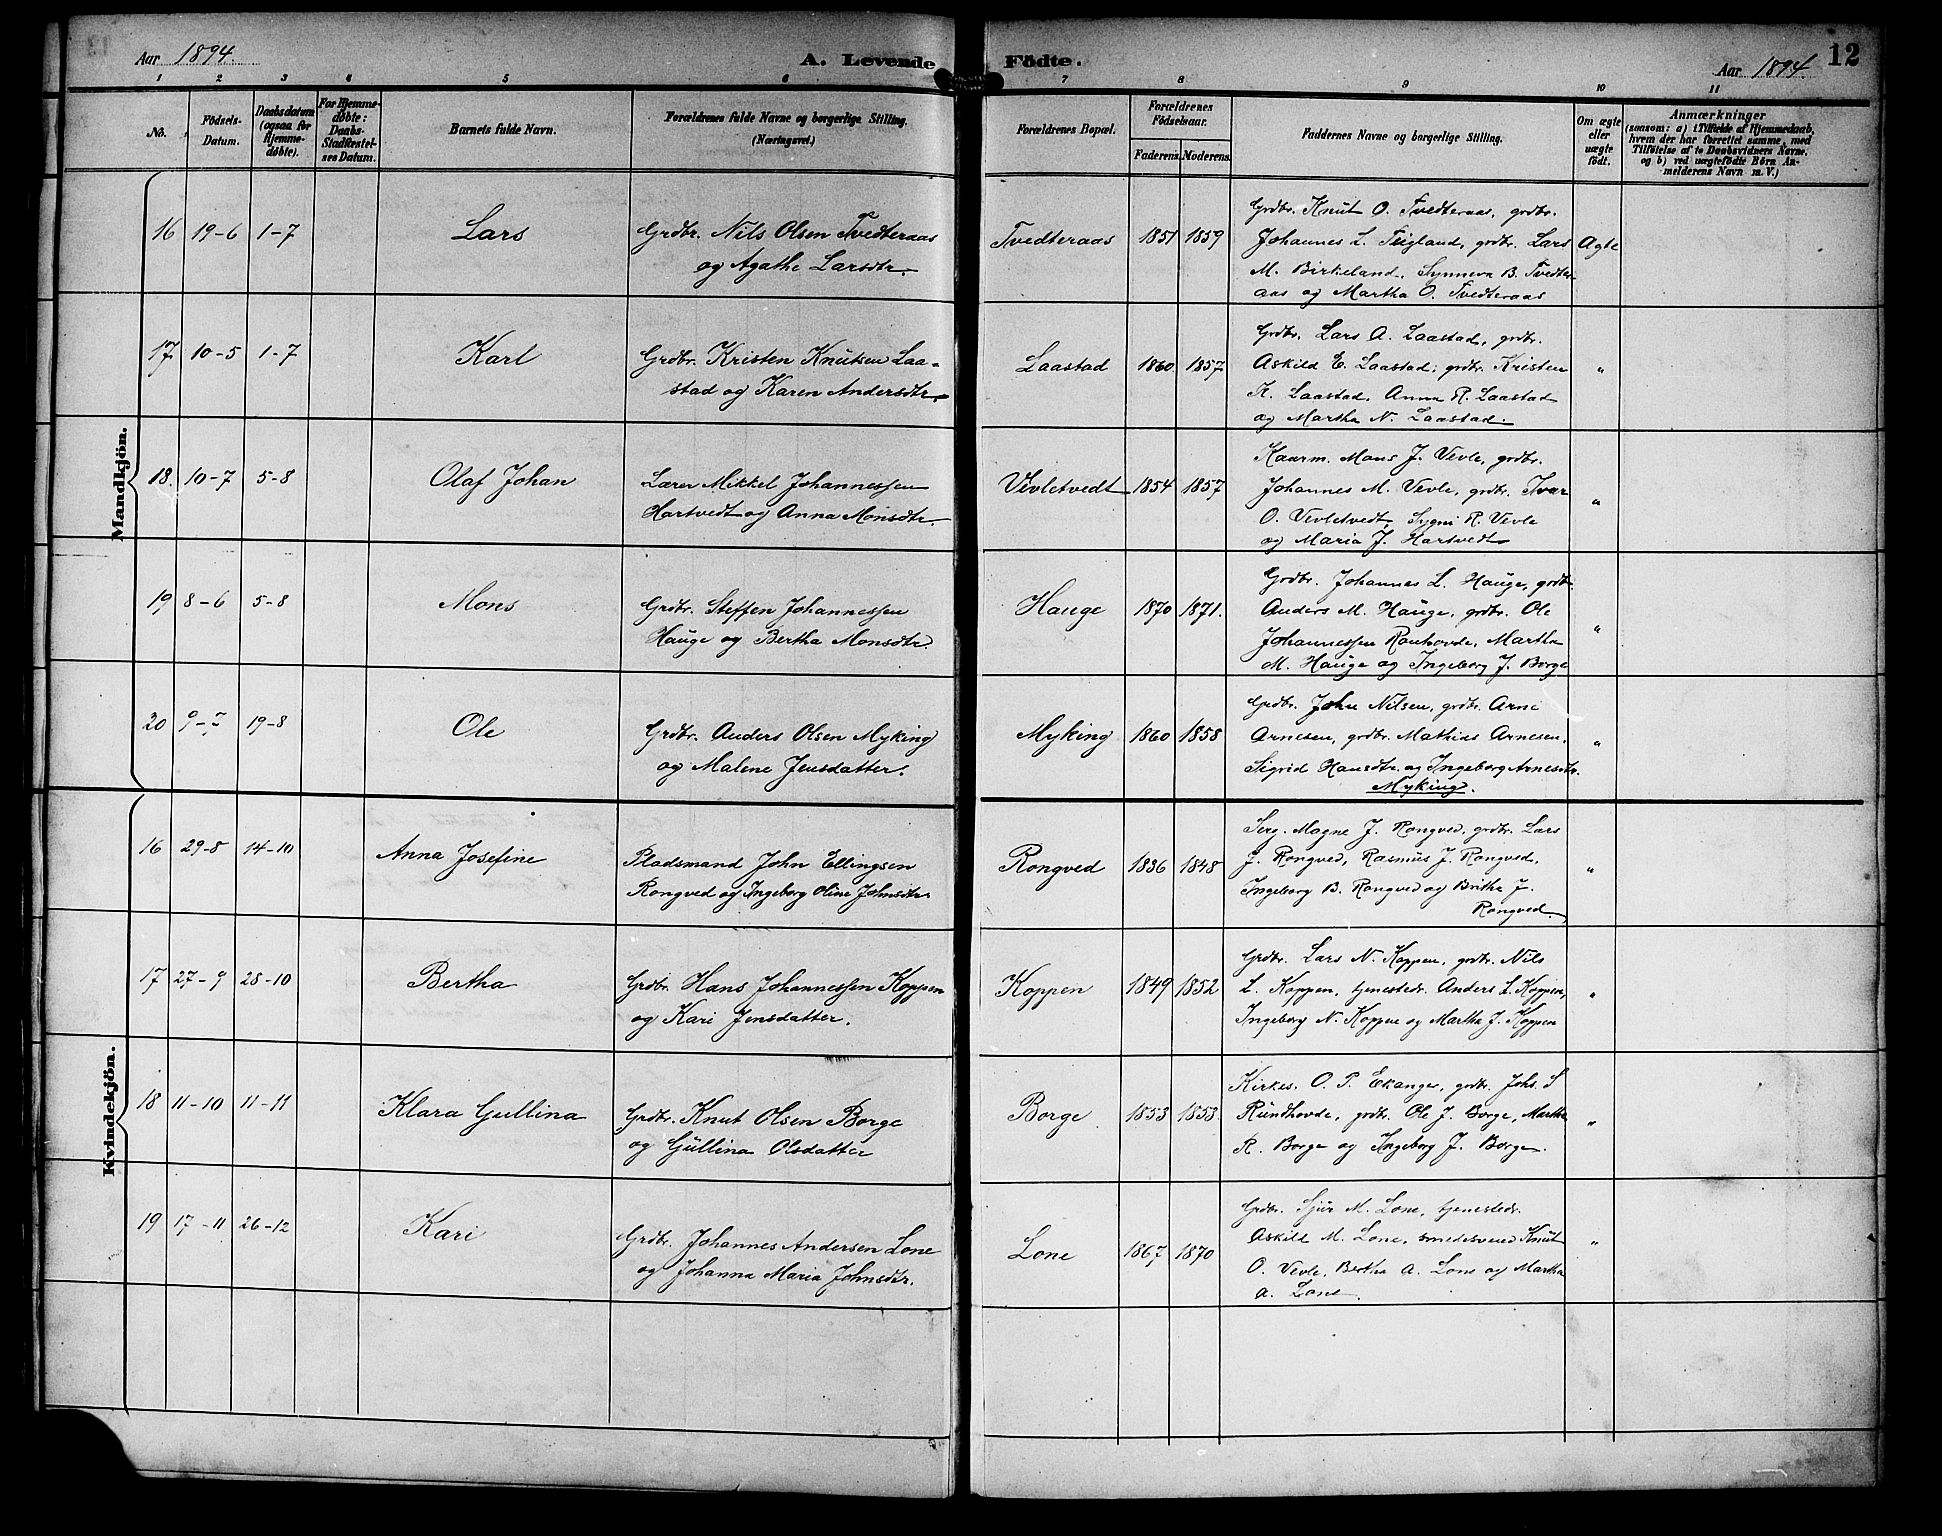 Aar 1894.
A. Levende
Födte.
12
Aar 1894.
1 2 3 6 5 6 7 8 9 10 11
No.
Födsels-
Datum.
Daabsdatum
(ogsaa for
Hjemme-
döbte).
For Hjemme-
döbte:
Daabs-
Stadfæstel-
ses Datum.
Barnets fulde Navn.
Forældrenes fulde Navne og borgerlige Stilling.
(Næringsvei.)
Forældrenes Bopæl.
Forældrenes
Födselsaar.
Faderens. Moderens.
Faddernes Navne og borgerlige Stilling.
Om ægte
eller
uægte
födt.
Anmærkninger
(saasom: a) i Tilfælde af Hjemmedaab,
hvem der har forrettet samme, med
Tilföielse af to Daabsvidners Navne,
og b) ved uægtefödte Börn An-
melderens Navn m. V.)
Mandkjön.
16 19-6 1-7 Lars
Grdbr. Nils Olsen Tvedteraas
og Agathe Larsdtr.
Tvedteraas 1851 1859
Grdbr. Knut O. Tvedteraas, grdbr.
Johannes L. Teigland, grdbr. Lars
M. Birkeland, Synneva B. Tvedter-
aas og Martha O. Tvedteraas
Ægte
17 10-5 1-7 Karl
Grdbr. Kristen Knutsen Laa-
stad og Karen Andersdtr.
Laastad 1860 1857
Grdbr. Lars A. Laastad, grdbr.
Askild E. Laastad, grdbr. Kristen
K. Laastad, Anna R. Laastad
og Martha N. Laastad.
"
18. 10-7 5-8 Olaf Johan
Lærer Mikkel Johannessen
Hartvedt og Anna Monsdtr.
Vevletvedt 1854 1857
Kaarm. Mons J. Vevle, grdbr.
Johannes M. Vevle, grdbr. Ivar
O. Vevletvedt, Sygni R. Vevle
og Maria J. Hartvedt
"
19 8-6 5-8 Mons
Grdbr. Steffen Johannessen
Hauge og Bertha Monsdtr.
Hauge 1870 1871.
Grdbr. Johannes L. Hauge, grdbr.
Anders M. Hauge, grdbr. Ole
Johannessen Rønhovde, Martha
M. Hauge og Ingeborg J. Borge
"
20 9-7 19-8 Ole
Grdbr. Anders Olsen Myking
og Malene Jensdatter.
Myking 1860 1858
Grdbr. John Nilsen, grdbr. Arne
Arnesen, grdbr. Mathias Arnesen,
Sigrid Hansdtr. og Ingeborg Arnesdtr.
Myking.
"
Kvindekjön.
16 29-8 14-10 Anna Josefine
Pladsmand John Ellingsen
Rongved og Ingeborg Oline Johnsdtr.
Rongved 1836 1848
Serg. Magne J. Rongved, grdbr. Lars
J. Rongved, Rasmus J. Rongved,
Ingeborg B. Rongved og Britha J.
Rongved.
"
17 27-9 28-10 Bertha
Grdbr. Hans Johannessen Koppen
og Kari Jensdatter.
Koppen 1849 1852
Grdbr. Lars N. Koppen, grdbr. Nils
L. Koppen, tjenestedr. Anders L. Koppen,
Ingeborg N. Koppen og Martha J. Koppen
"
18 11-10 11-11 Klara Gullina
Grdbr. Knut Olsen Borge
og Gullina Olsdatter
Borge 1853 1853
Kirkes. O. P. Ekanger, grdbr. Johs. S
Rundhovde, grdbr. Ole J. Borge, Martha
R. Borge og Ingeborg J. Borge.
"
19 17-11 26-12 Kari
Grdbr. Johannes Andersen Lone
og Johanna Maria Johnsdtr.
Lone 1867 1870
Grdbr. Sjur M. Lone, tjenestedr.
Askild M. Lone, smedesvend Knut
O. Vevle, Bertha A. Lone og Martha
A. Lone.
"